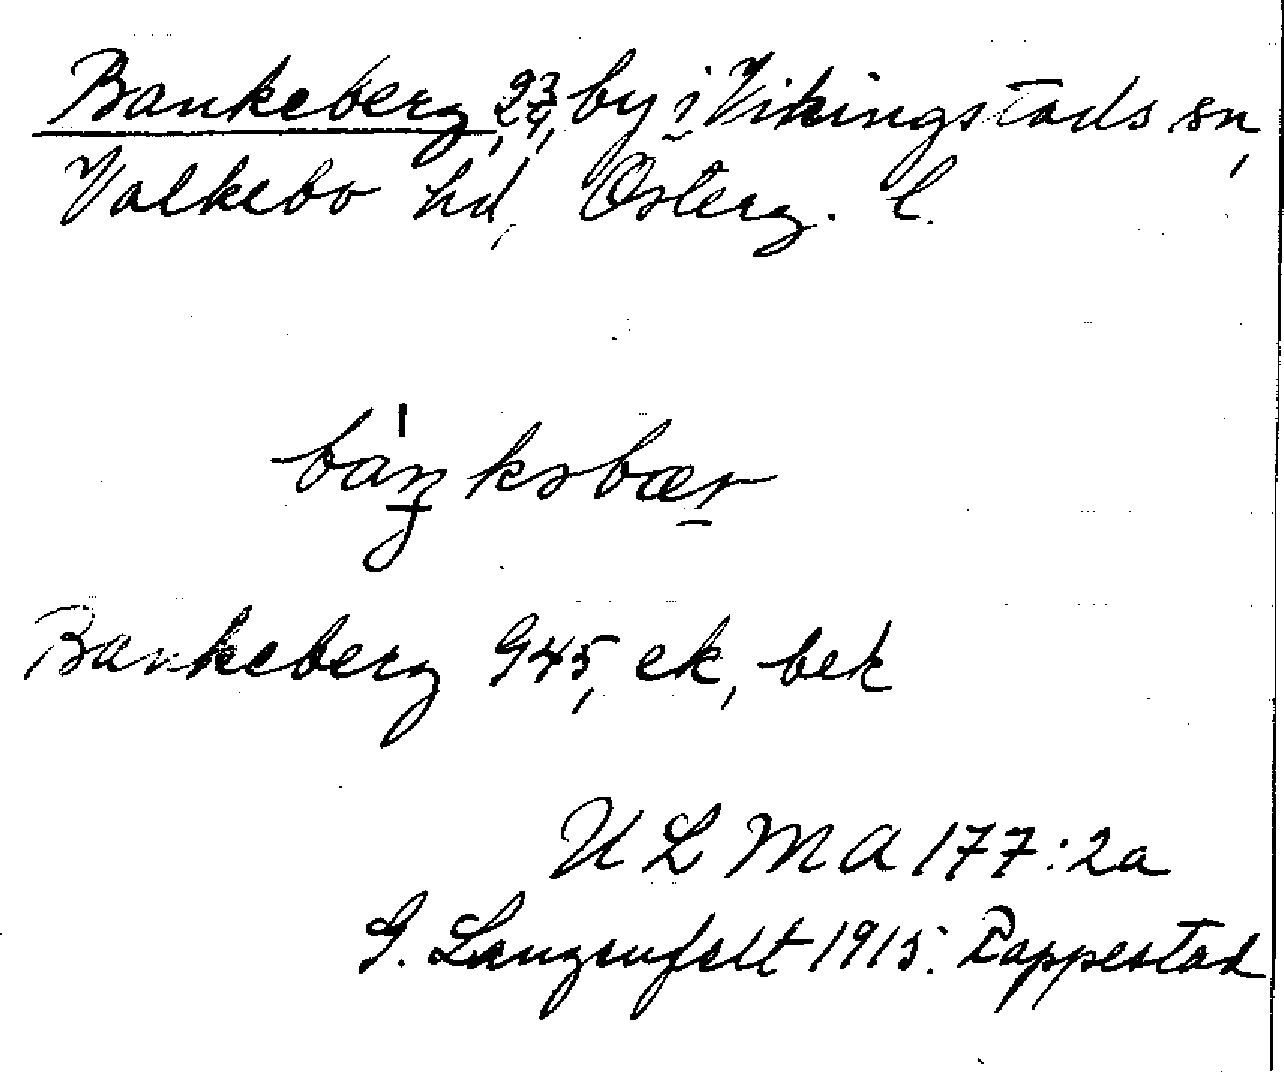 Bankeberg, 2 3/4, by i Vikingstads sn,
Valkebo hd, Österg. l.
báŋksbær
Bankeberg G45, ek, bek
ULMA 177:2a
G. Langenfelt 1915. Rappestad